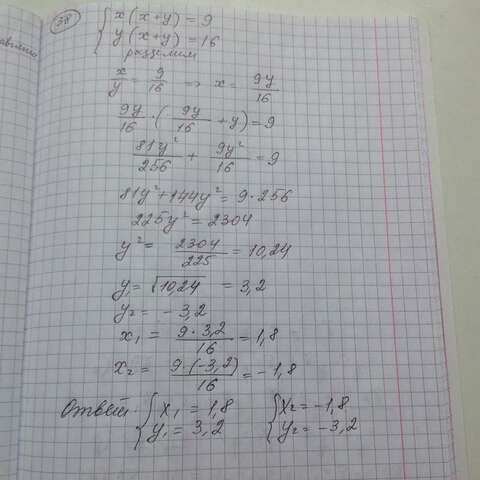 38
{ x(x+y) = 9
{ y(x+y) = 16
разделим
x/y = 9/16 → x = 9y/16
9y/16 · (9y/16 + y) = 9
81y²/256 + 9y²/16 = 9
81y² + 144y² = 9·256
225y² = 2304
y² = 2304/225 = 10,24
y₁ = √10,24 = 3,2
y₂ = -3,2
x₁ = 9·3,2/16 = 1,8
x₂ = 9·(-3,2)/16 = -1,8
Ответ. { x₁ = 1,8 { x₂ = -1,8
{ y₁ = 3,2 { y₂ = -3,2